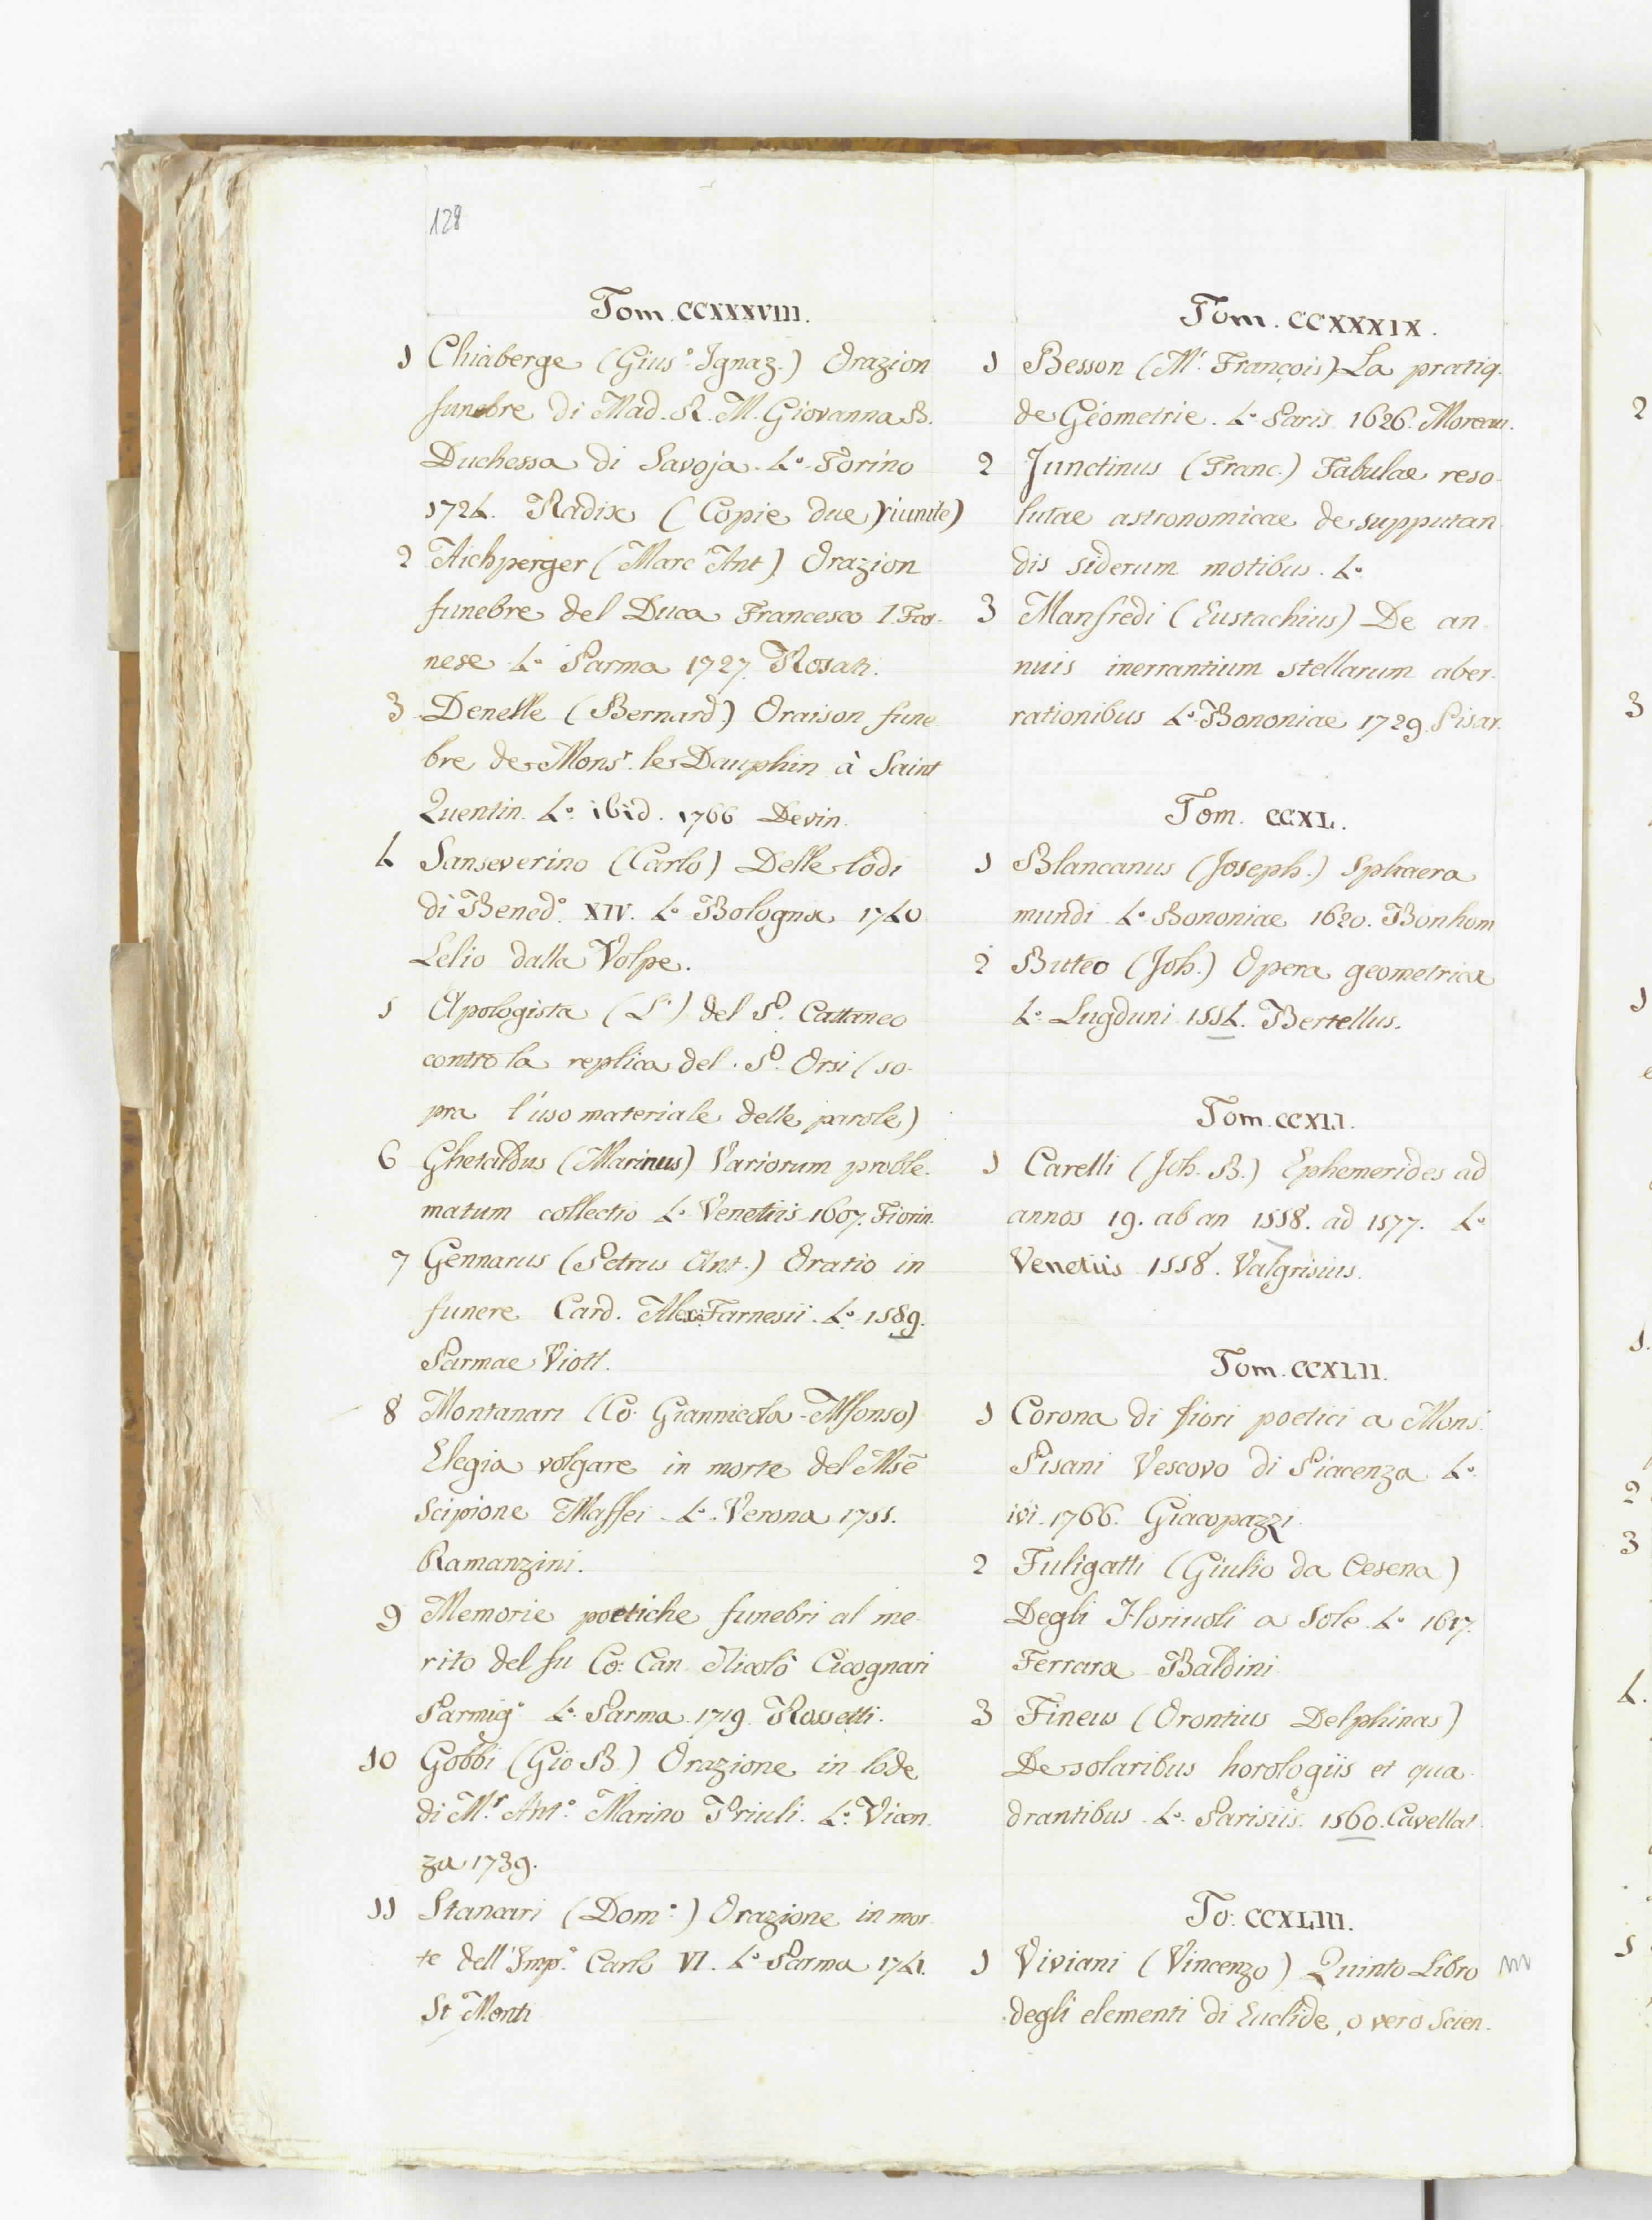 128
Tom. CCXXXVIII.
1 Chiaberge (Gius.e Ignaz.) Orazion
funebre di Mad. R. M. Giovanna B.
Duchessa di Savoja. 4.o Torino
1724. Radix (Copie due) riunite)
2 Aichperger (Marc'Ant.) Orazion
funebre del Duca Francesco I Far-
nese 4.o Parma 1727. Rosati.
3 Denelle (Bernard.) Oraison fune
bre de Mons.r le Dauphin à Saint
Quentin. 4.o ibid. 1766 Devin.
4 Sanseverino (Carlo) Delle lodi
di Bened.o XIV. 4.o Bologna 1740
Lelio dalla Volpe.
5 Apologista (L') del P. Cattaneo
contro la replica del P. Orsi (so-
pra l'uso materiale delle parole)
6 Ghetaldus (Marinus) Variorum proble-
matum collectio 4.o Venetiis 1607. Fiorin.
7 Gennarus (Petrus Ant.) Oratio in
funere Card. Alex. Farnesii. 4.o 1589.
Parmae Viott.
8 Montanari (Co: Giannicola-Alfonso)
Elegia volgare in morte del Mse
Scipione Maffei. 4.o Verona 1755.
Ramanzini.
9 Memorie poetiche funebri al me-
rito del fu Co: Can. Nicolò Cicognari
Parmig.o 4.o Parma 1719. Rossetti.
10 Gobbi (Gio B.) Orazione in lode
di M.r Ant.o Marino Priuli. 4.o Vicen
za 1739.
11 Stancari (Dom.o) Orazione in mor-
te dell'Imp.e Carlo VI. 4.o Parma 1741.
St Monti
Tom. CCXXXIX.
1 Besson (M.r François) La pratiq.
de Géometrie. 4.o Paris 1626. Moreau.
2 Junctinus (Franc.) Tabulae reso-
lutae astronomicae de supputan
dis siderum motibus. 4.o
3 Manfredi (Eustachius) De an-
nuis inerrantium stellarum aber-
rationibus 4.o Bononiae 1729. Pisar.
Tom. CCXL.
1 Blancanus (Joseph.) Sphaera
mundi 4.o Bononiae 1620. Bonhom
2 Buteo (Joh.) Opera geometrica
4.o Lugduni 1554. Bertellus.
Tom. CCXLI.
1 Carelli (Joh. B.) Ephemerides ad
annos 19. ab an 1558. ad 1577. 4.o
Venetiis 1558. Valgrisius.
Tom. CCXLII.
1 Corona di fiori poetici a Mons.
Pisani Vescovo di Piacenza 4.o
ivi. 1766. Giacopazzi
2 Fuligatti (Giulio da Cesena)
Degli Horiuoli a Sole 4.o 1617.
Ferrara Baldini
3 Fineus (Orontius Delphinas)
De solaribus horologiis et qua-
drantibus. 4.o Parisiis. 1560. Cavellat.
To: CCXLIII.
1 Viviani (Vincenzo) Quinto Libro
degli elementi di Euclide, o vero Scien-